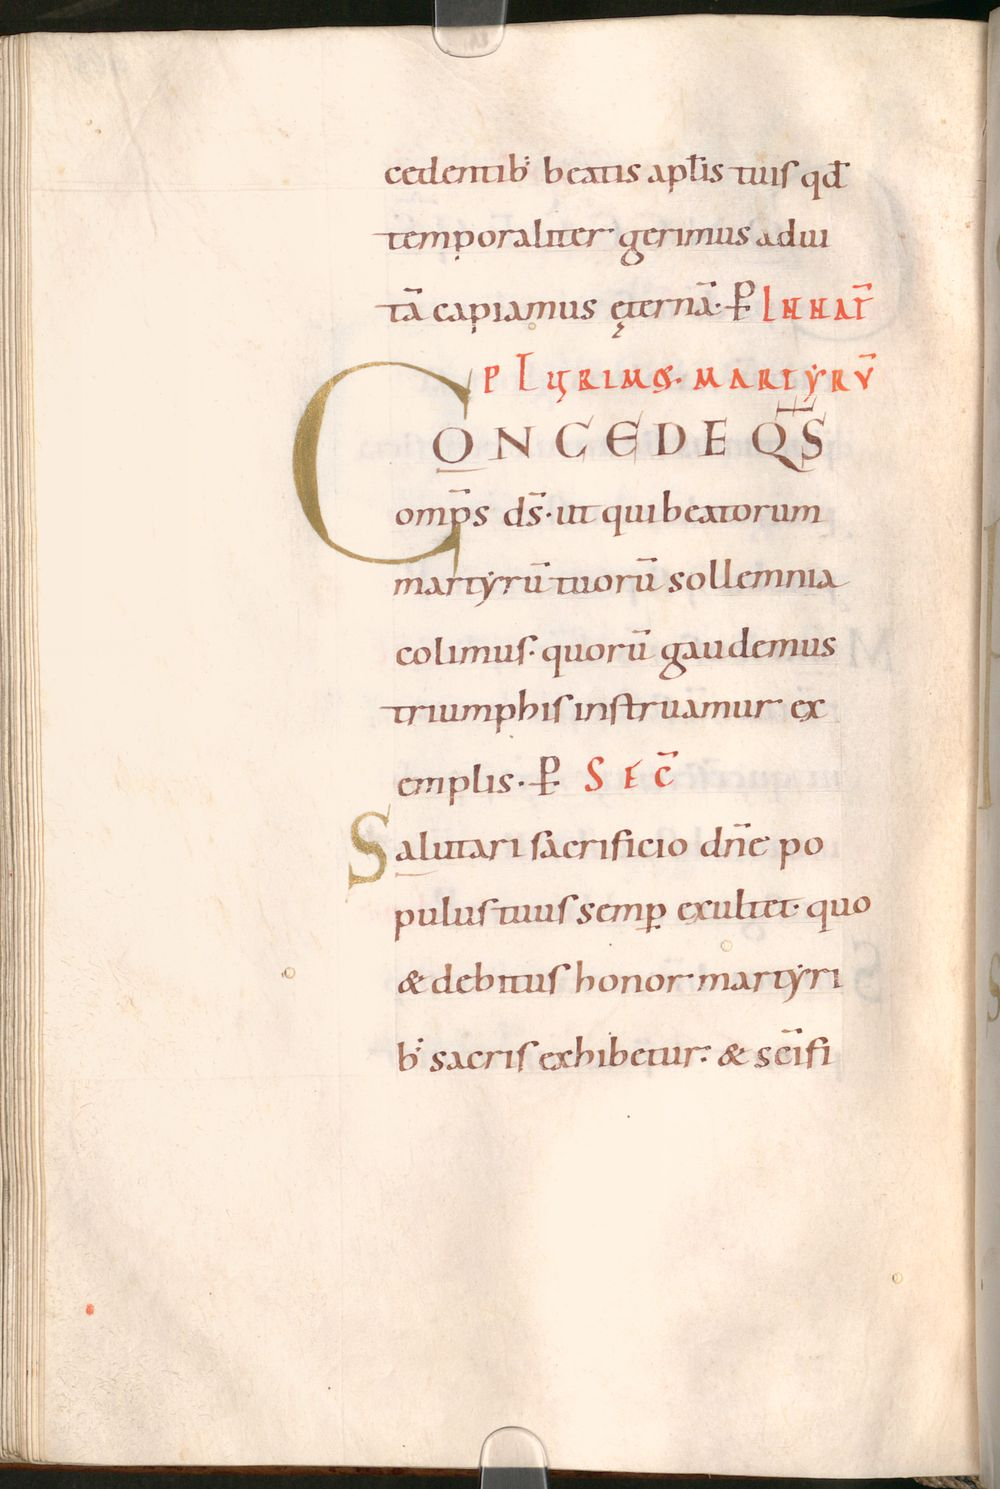 cedentib; beatis apłis tuis qđ
temporaliter gerimus ad ui
tā capiamus ęternā· ꝑ IN NAT̄
PLURIMOꝜ· MARTYRŪ
CONCEDE Q̄S
omp̄s d̄s· ut qui beatorum
martyrū tuorū sollemnia
colimus· quorū gaudemus
triumphis instruamur ex
emplis· ꝑ SEC̄
Salutari sacrificio dn̄e po
pulus tuus semꝑ exultet· quo
& debitus honor martyri
b; sacris exhibetur· & sc̄ifi